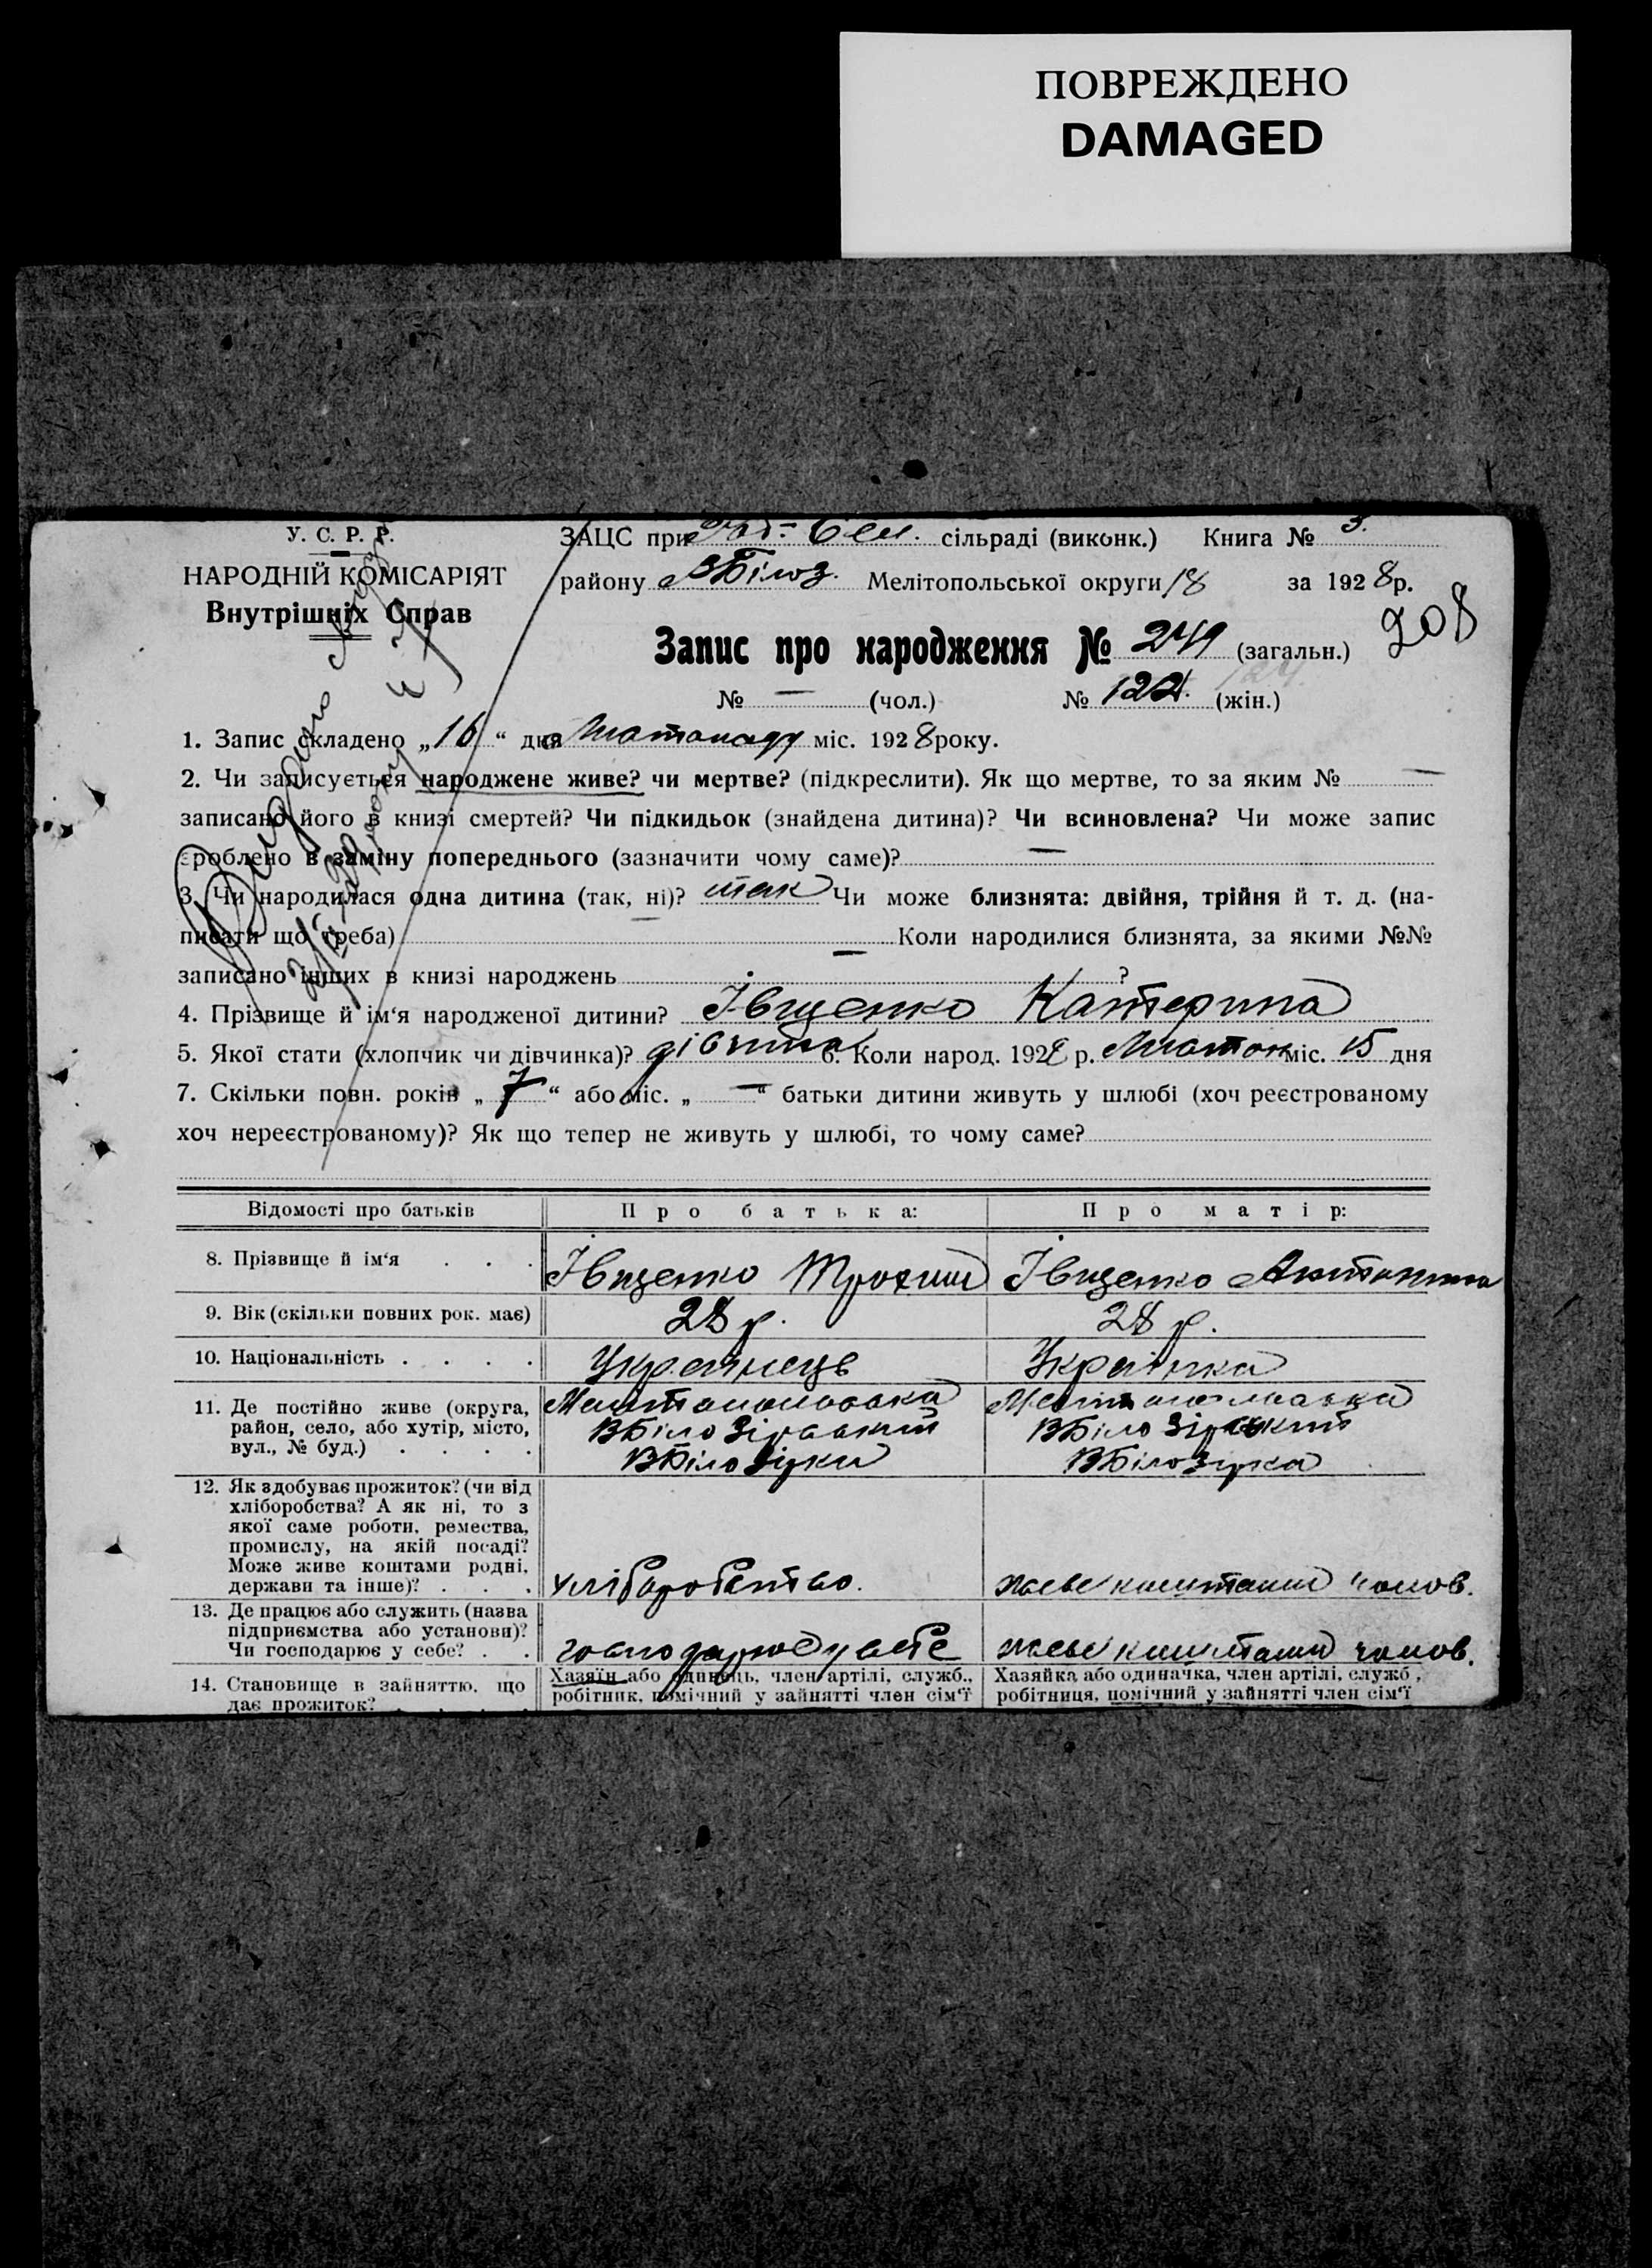 ПОВРЕЖДЕНО
DAMAGED
У. С. Р. Р.
НАРОДНІЙ КОМІСАРІЯТ
Внутрішніх Справ
ЗАЦС при сільраді (виконк.) Книга № 3.
району ВБілоз. Мелітопольської округи 18 за 1928 р.
208
Запис про народження № 241 (загальн.)
№ — (чол.) № 122. (жін.) 124.
Видано
1. Запис складено „16“ дня Листопаду міс. 1928 року.
2. Чи записується народжене живе? чи мертве? (підкреслити). Як що мертве, то за яким № —
записано його в книзі смертей? Чи підкидьок (знайдена дитина)? Чи всиновлена? Чи може запис
зроблено в заміну попереднього (зазначити чому саме)? —
3. Чи народилася одна дитина (так, ні)? так Чи може близнята: двійня, трійня й т. д. (на-
писати що треба) — Коли народилися близнята, за якими №№
записано інших в книзі народжень ?
4. Прізвище й ім‘я народженої дитини? Івщенко Катерина
5. Якої стати (хлопчик чи дівчинка)? дівчина 6. Коли народ. 1928 р. Листоп міс. 15 дня
7. Скільки повн. років „7“ або міс. „—“ батьки дитини живуть у шлюбі (хоч реєстрованому
хоч нереєстрованому)? Як що тепер не живуть у шлюбі, то чому саме?
Відомості про батьків Про батька: Про матір:
8. Прізвище й ім‘я . . . Івщенко Трохим Івщенко Антонина
9. Вік (скільки повних рок. має) 28 р. 28 р.
10. Національність . . . . Українець Українка
11. Де постійно живе (округа,
район, село, або хутір, місто,
вул., № буд.) . . . .
ВБілозірський ВБілозірський
ВБілозірки ВБілозірка
12. Як здобуває прожиток? (чи від
хліборобства? А як ні, то з
якої саме роботи, ремества,
промислу, на якій посаді?
Може живе коштами родні,
держави та інше)? . . . хліборобство. живе коштами чолов.
13. Де працює або служить (назва
підприємства або установи)?
Чи господарює у себе? . . господарює у себе живе коштами чолов.
14. Становище в зайняттю, що
дає прожиток? . . . .
Хазяїн або одинець, член артілі, служб.,
робітник, помічний у зайнятті член сім‘ї
Хазяйка або одиначка, член артілі, служб.,
робітниця, помічний у зайнятті член сім‘ї